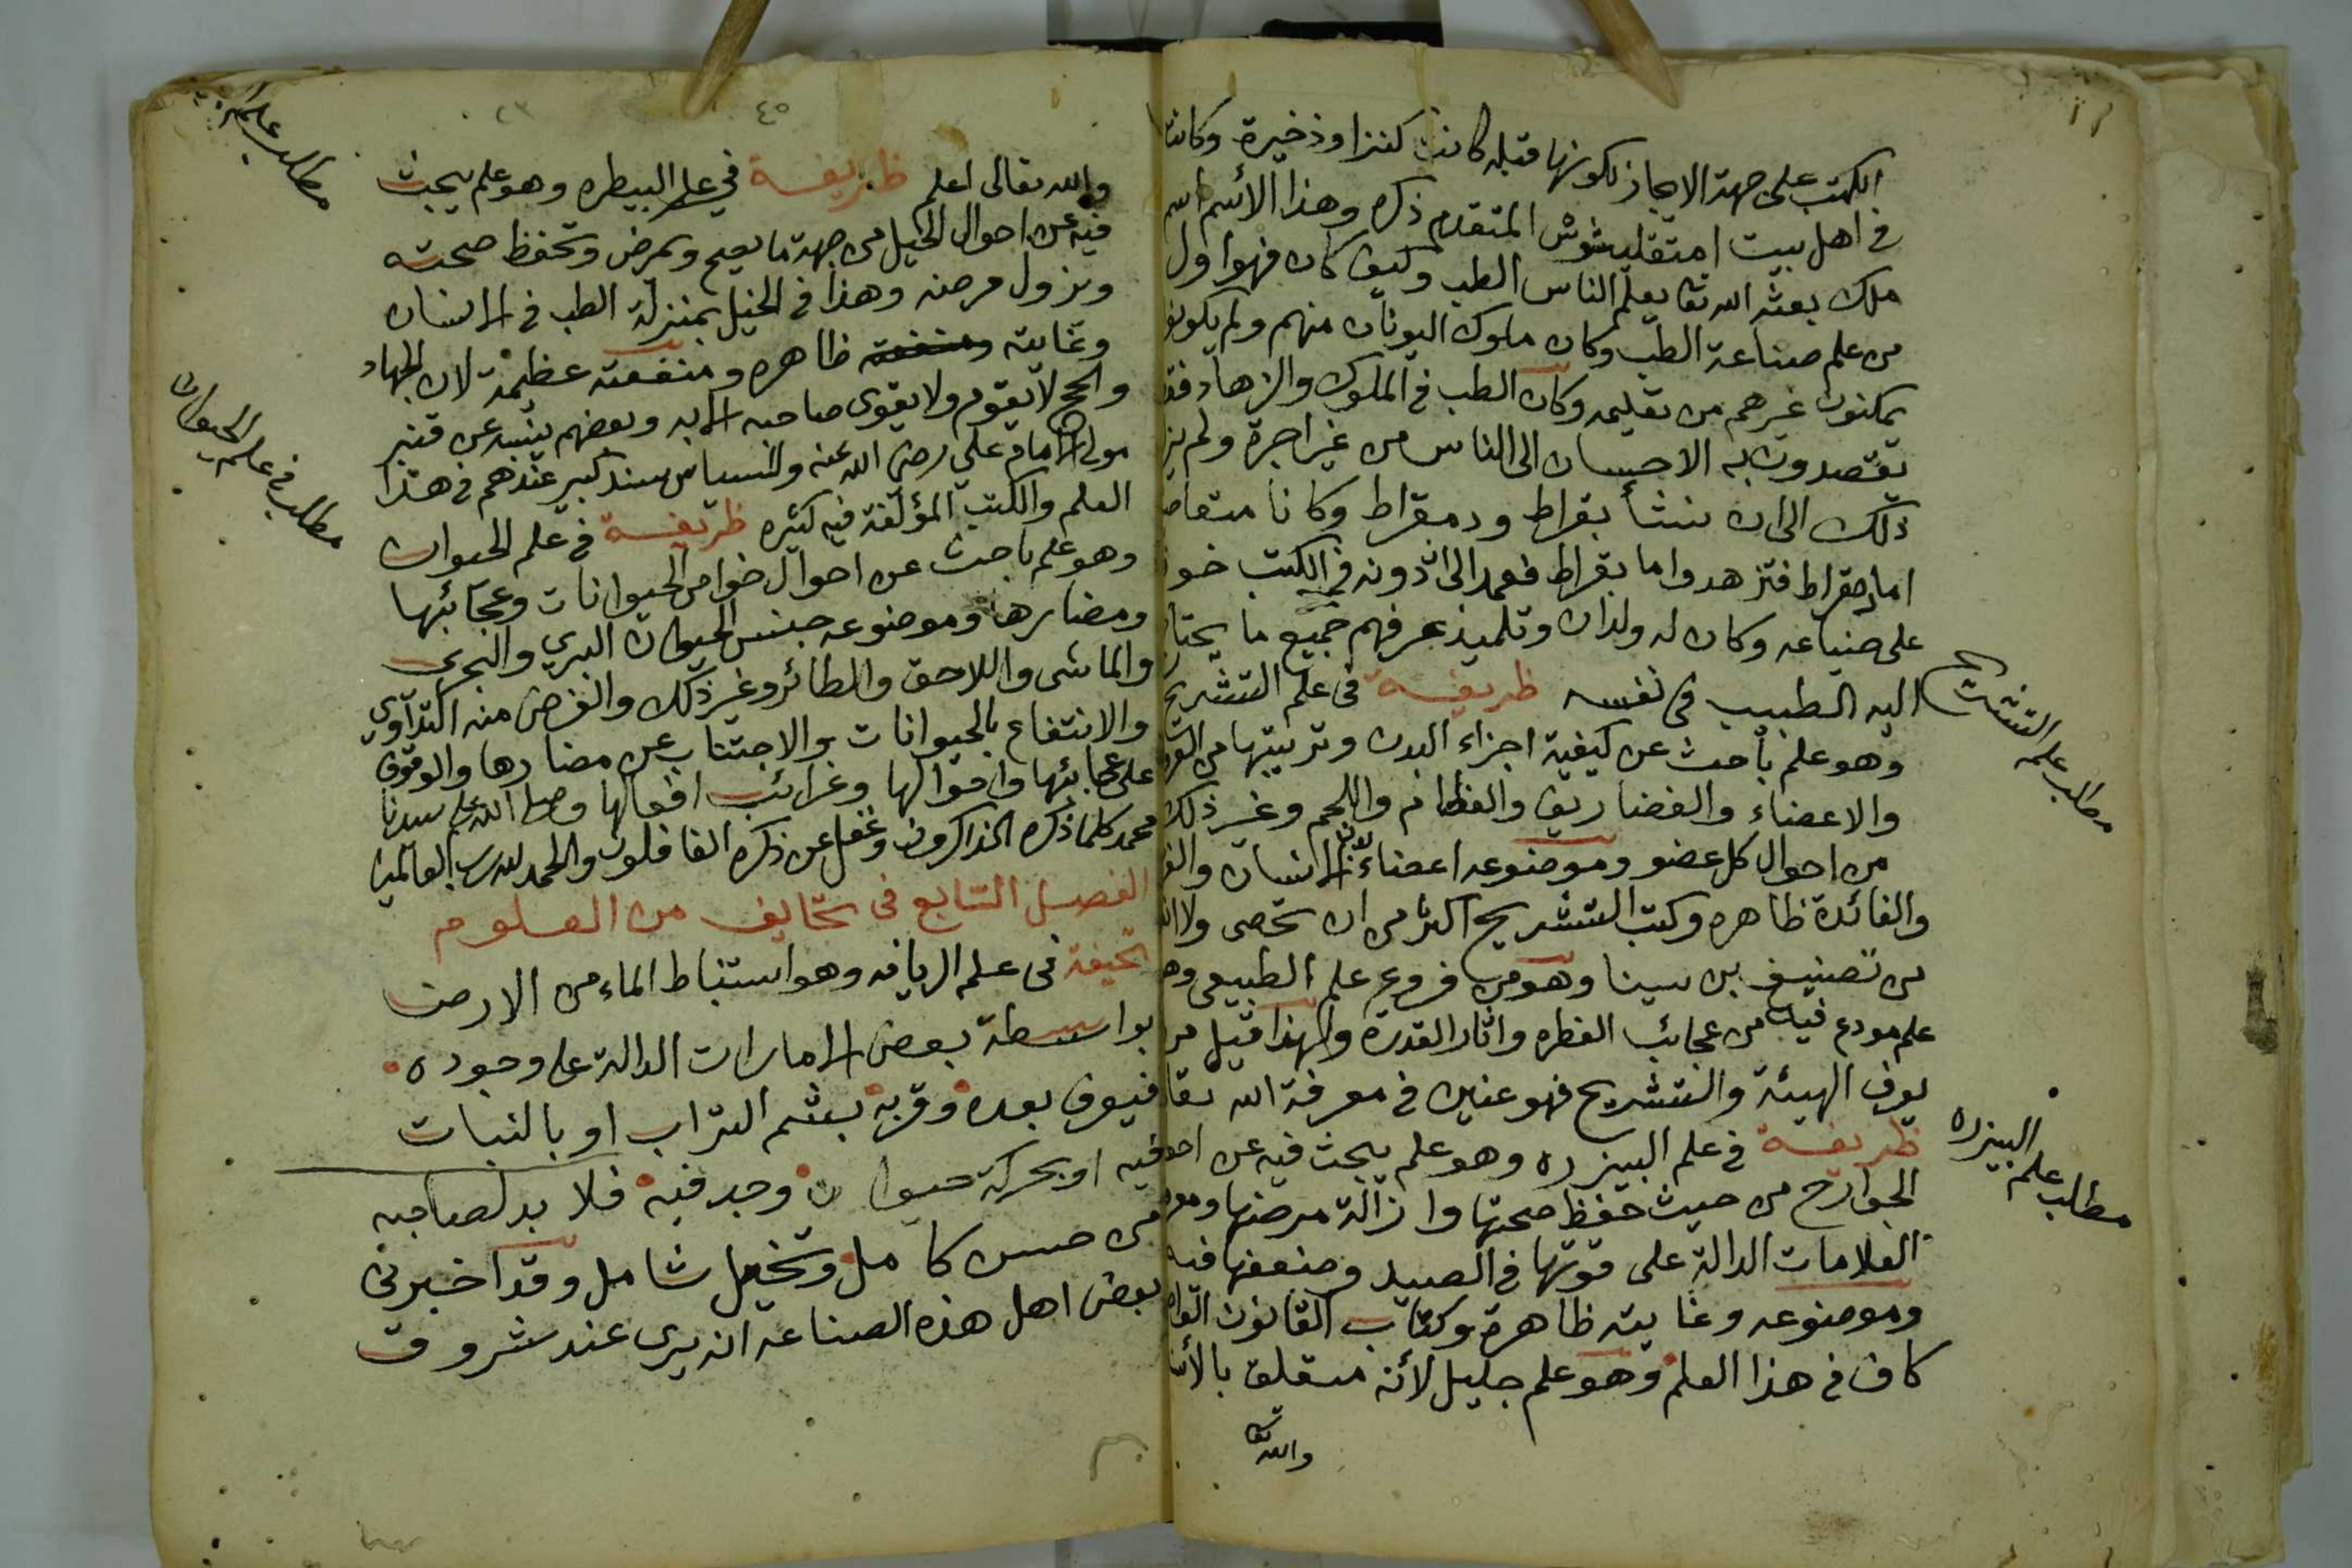 الكتب على جهة الايجاز لكونها قبله كانت كنزا وذخيرة وكانت
في اهل بيت المتقدم ذكره وهذا الأسم اسم
ملك بعثه الله تعا يعلم الناس الطب وكيف كان فهو اول
من علم صناعة الطب وكان ملوك اليونان منهم ولم يكونو
يمكنون غيرهم من تعليمه وكان الطب في الملوك والزهاد فقد
يقصدون به الاحسان الى الناس من غير اجرة ولم يز
ذلك الى ان نشأ بقراط ودمقراط وكانا متعاصر
اما دمقراط فتزهد واما بقراط فعمد الى ان دونه في الكتب خوفا
على ضياعه وكان له ولدان وتلميذ عرفهم جميع ما يحتاج
اليه الطبيب في نفسه ظريفة في علم التشريح
وهو علم باحث عن كيفية اجزاء البدن وترتيبها من العرو
والاعضاء والغضاريف والعظام واللحم وغير ذلك
من احوال كل عضو وموضوعه اعضاء الانسان والغر
والفائدة ظاهره وكتب التشريح اكثر من ان تحصى ولا
من تصنيف بن سينا وهو من فروع علم الطبيعي وهو
علم مودع فيه من عجائب الفطره واثار القدرة ولهذا قيل من
لم يعرف الهيئة والتشريح فهو عنين في معرفة الله تعا
ظريفة في علم البيزره وهو علم يبحث فيه عن احوا
الجوارح من حيث حفظ صحتها وازالة مرضها ومعر
العلامات الدالة على قوتها في الصيد وضعفها فيه
وموضوعه وغايته ظاهرة وكتاب القانون الواضح
كاف في هذا العلم وهو علم جليل لأنه متعلق بالأنبيا
والله تعا
مطلب علم التشريح
مطلب علم البيزره
٤٥
والله تعالى اعلم ظريفة في علم البيطره وهو علم يبحث
فيه عن احوال الخيل من جهة ما يصح ويمرض وتحفظ صحته
ويزول مرضه وهذا في الخيل بمنزلة الطب في الانسان
وغايته ومنفعته ظاهره ومنفعته عظيمة لان الجهاد
والحج لا يقوم ولا يقوى صاحبه الا به وبعضهم يسند عن قنبر
مولى الامام علي رضي الله عنه وللسياس سند كبير عندهم في هذا
العلم والكتب المؤلفة فيه كثيره ظريفة في علم الحيوان
وهو علم باحث عن احوال خواص الحيوانات وعجائبها
ومضارها وموضوعه جنس الحيوان البري والبحري
والماشى واللاحق والطائر وغير ذلك والغرض منه التداوي
والانتفاع بالحيوانات والاجتناب عن مضارها والوقوف
على عجائبها واحوالها وغرائب افعالها وصلى الله على سيدنا
محمد كلما ذكره الذاكرون وغفل عن ذكره الغافلون والحمد لله رب العالمين
الفصل السابع في تحايف من العلوم
تحيفة في علم الريافه وهو استنباط الماء من الارض
بواسطة بعض الامارات الدالة على وجوده
فيعرف بعده وقربه بشم التراب او بالنبات
فيه او بحركة حيوان وجد فيه فلا بد لصاحبه
من حس كامل وتخيل شامل وقد اخبرني
بعض اهل هذه الصناعه انه يرى عند شروق
مطلب علم
مطلب في علم الحيوان